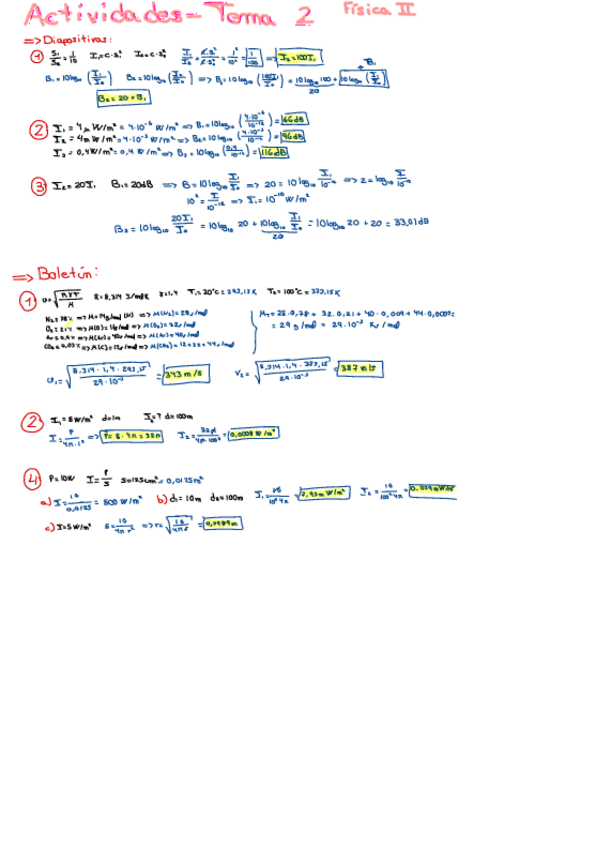 Actividades - Tema 2 Física II
=> Diapositivas:
① S₁/S₂ = 1/10 I₁=C·S₁² I₂=C·S₂² I₁/I₂ = C·S₁²/C·S₂² = 1²/10² = 1/100 => I₂=100I₁
B₁=10log₁₀(I₁/I₀) B₂=10log₁₀(I₂/I₀) => B₂=10log₁₀(100I₁/I₀) = 10log₁₀100 + 10log₁₀(I₁/I₀)
20 B₁
B₂ = 20 + B₁
② I₁ = 4μ W/m² = 4·10⁻⁶ W/m² => B₁=10log₁₀(4·10⁻⁶/10⁻¹²) = 66dB
I₂ = 4m W/m² = 4·10⁻³ W/m² => B₂=10log₁₀(4·10⁻³/10⁻¹²) = 96dB
I₃ = 0,4W/m² = 0,4 W/m² => B₃ = 10log₁₀(0,4/10⁻¹²) = 116dB
③ I₂=20I₁ B₁=20dB => B=10log₁₀ I₁/I₀ => 20 = 10log₁₀ I₁/10⁻¹² => 2=log₁₀ I₁/10⁻¹²
10² = I/10⁻¹² => I₁=10⁻¹⁰ W/m²
B₂=10log₁₀ 20I₁/I₀ = 10log₁₀ 20 + 10log₁₀ I₁/I₀ = 10log₁₀ 20 + 20 = 33,01dB
20
=> Boletín:
① v=√(γRT/M) R=8,314 J/molK γ=1,4 T₁=20°C = 293,15K T₂=100°C = 373,15K
N₂=78% => M=14g/mol (N) => M(N₂)=28g/mol
O₂=21% => M(O)=16g/mol => M(O₂)=32g/mol
=> M(Ar)=40g/mol => M(Ar)=40g/mol
=> M(C)=12g/mol => M(CO₂)=12+32=44g/mol
M_T=28·0,78 + 32·0,21 + 40·0,009 +
= 29 g/mol = 29·10⁻³ Kg/mol
v₁=√(8,314·1,4·293,15/29·10⁻³) = 343 m/s V₂=√(8,314·1,4·373,15/29·10⁻³) = 387 m/s
② I₁=8W/m² d=1m I₂=? d=100m
I=P/4π·1² => P=8·4π=32π I₂=32π/4π·100² = 0,0008 W/m²
④ P=10W I=P/S S=125cm²=0,0125m²
a) I=10/0,0125 = 800 W/m² b) d₁=10m d₂=100m
c) I=5W/m² 5=10/4πr² => r=√(10/4π5) = 0,3989m